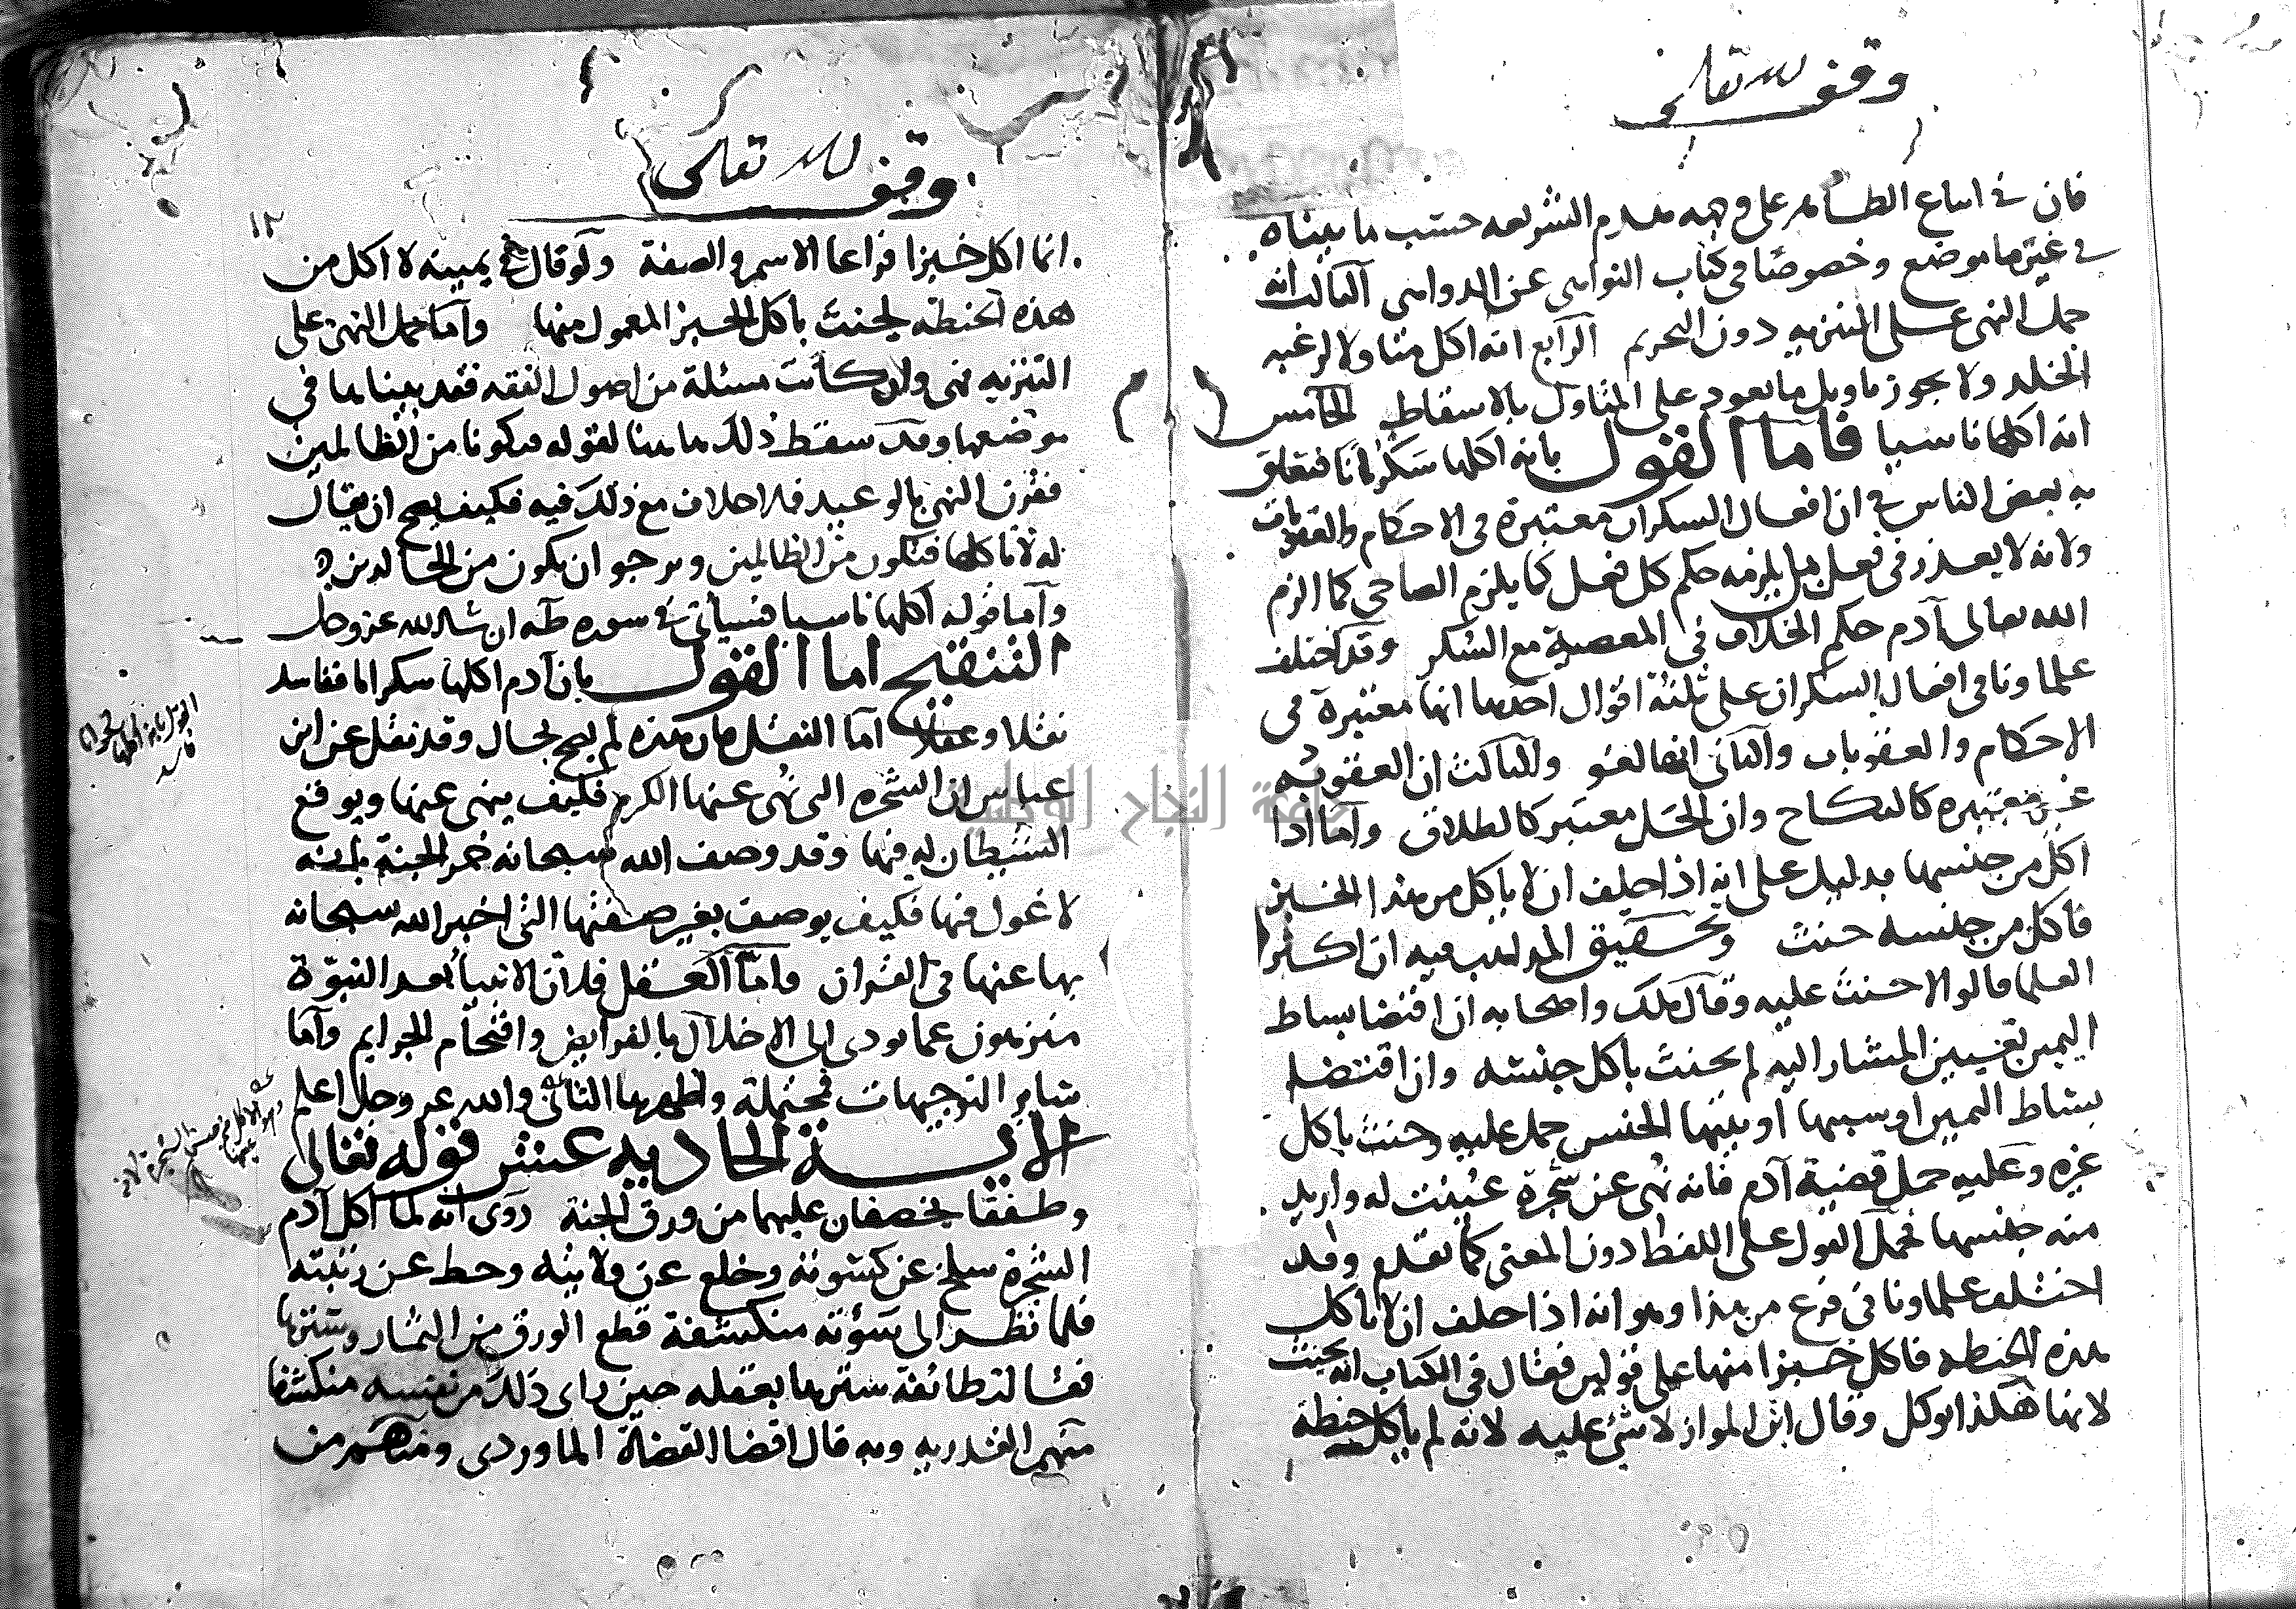 وقف لله تعالى
فان في اتباع الظاهر على وجهه هدم الشريعه حسب ما بيناه
في غير ما موضع وخصوصا في كتاب النواهي عن الدواهي الثالث انه
حمل النهي على التنزيه دون التحريم الرابع انه اكل متاولا لرغبه
الخلد ولا يجوز تاويل ما يعود على المتاول بالاسقاط الخامس
انه اكلها ناسيا فاما القول بانه اكلها سكرانا فتعلق
به بعض الناس في ان افعال السكران معتبرة في الاحكام والعقوبات
ولانه لا يعذر في فعله بل يلزمه حكم كل فعل كما يلزم الصاحي كما الزم
الله تعالى آدم حكم الخلاف في المعصية مع السكر وقد اختلف
علماونا في افعال السكران على ثلثة اقوال احدها انها معتبرة في
الاحكام والعقوبات والثاني انها لغو والثالث ان العقود
غير معتبره كالنكاح وان الحل معتبر كالطلاق واما اذا
اكل من جنسها بدليل على انه اذا حلف ان لا ياكل من هذا الخبز
فاكل من جنسه حنث وتحقيق المذهب فيه ان اكثر
العلما قالوا لا حنث عليه وقال ملك واصحابه ان اقتضا بساط
اليمين تعيين المشار اليه لم يحنث باكل جنسه وان اقتضا
بساط اليمين او سببها او نيتها الجنس حمل عليه وحنث باكل
غيره وعليه حمل قضية آدم فانه نهى عن شجرة عينت له واريد
منه جنسها فحمل القول على اللفظ دون المعنى كما تقدم وقد
اختلف علماونا في فرع من هذا وهو انه اذا حلف ان لا ياكل
هذه الحنطه فاكل خبزا منها على قولين فقال في الكتاب انه يحنث
لانها هكذا توكل وقال ابن المواز لا شئ عليه لانه لم ياكل حنطة
وقف لله تعالى
١٢
انما اكل خبزا فراعا الاسم والصفة ولو قال في يمينه لا اكل من
هذه الحنطه لحنث باكل الخبز المعمول منها واما حمل النهي على
التنزيه فهي وان كانت مسئلة من اصول الفقه فقد بيناها في
موضعها وقد سقط ذلك هاهنا لقوله فتكونا من الظالمين
فقرن النهي بالوعيد فلا خلاف مع ذلك فيه فكيف يصح ان يقال
له لا تاكلها فتكون من الظالمين ويرجو ان يكون من الخالدين
واما قوله اكلها ناسيا فسيأتي في سوره طه ان شاء الله عز وجل
التنقيح اما القول بان آدم اكلها سكرانا ففاسد
نقلا وعقلا اما النقل فان هذه لم يصح بحال وقد نقل عن ابن
عباس ان الشجره التي نهى عنها الكرم فكيف ينهى عنها ويوقع
الشيطان له فيها وقد وصف الله سبحانه خمر الجنة بانه
لا غول فيها فكيف يوصف بغير صفتها التي اخبر الله سبحانه
بها عنها في القران واما العقل فلان الانبيا بعد النبوة
منزهون عما يودي الى الاخلال بالفرايض واقتحام الجرايم واما
ساير التوجيهات فمحتملة واظهرها الثاني والله عز وجل اعلم
الايـة الحاديه عشر قوله تعالى
وطفقا يخصفان عليهما من ورق الجنة روى انه لما اكل آدم
الشجرة سلخ عن كسوته وخلع عن ولايته وحط عن رتبته
فلما نظر الى سوءته منكشفة قطع الورق من الثمار وسترها
فقالت طائفة سترها بعقله حين راى ذلك من نفسه منكشفا
منهم القدريه وبه قال اقضا القضاة الماوردي ومنهم من
القول بانه اكلها سكرانا
فاسد